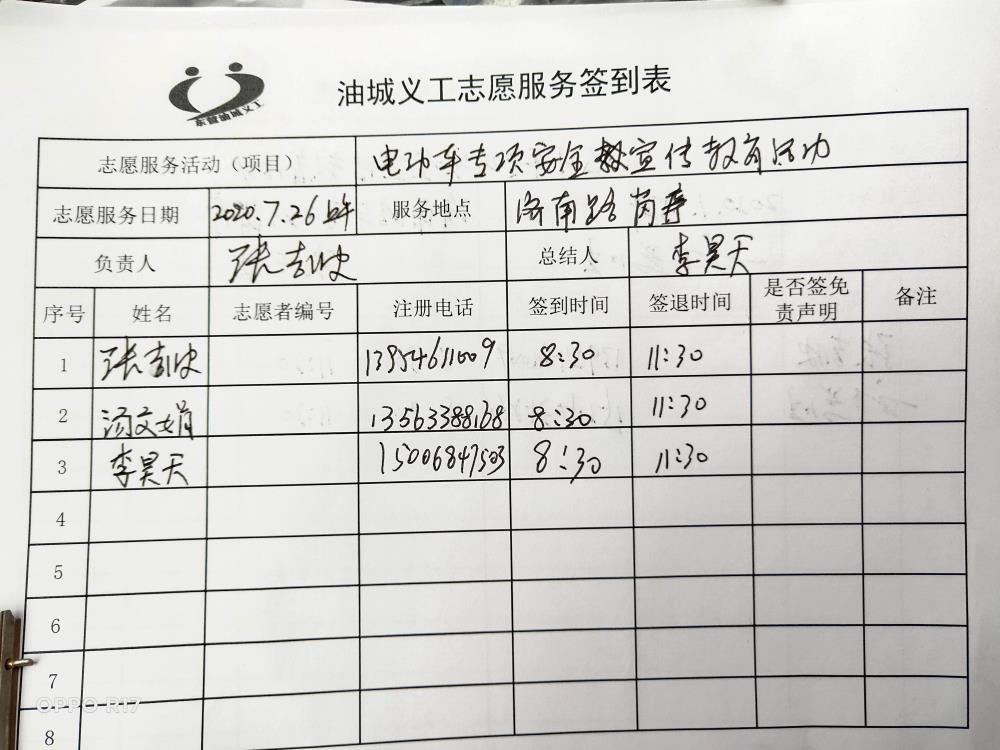 东营油城义工
油城义工志愿服务签到表
志愿服务活动（项目） 电动车专项安全教宣传教育活动
志愿服务日期 2020.7.26上午 服务地点 济南路
负责人 张 总结人 李昊天
序号 姓名 志愿者编号 注册电话 签到时间 签退时间 是否签免责声明 备注
1 张 13954611009 8:30 11:30
2 汤文娟 13563388168 8:30 11:30
3 李昊天 15006847503 8:30 11:30
4
5
6
7
8
OPPO R17